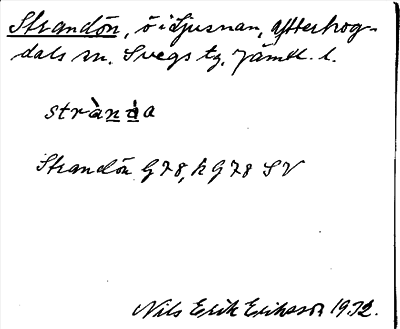 Strandön, ö i Ljusnan, Ytterhog-
dals sn. Svegs tg, Jämtl. l.
Strandön G 78, k G 78 SV
Nils Erik Eriksson 1932.